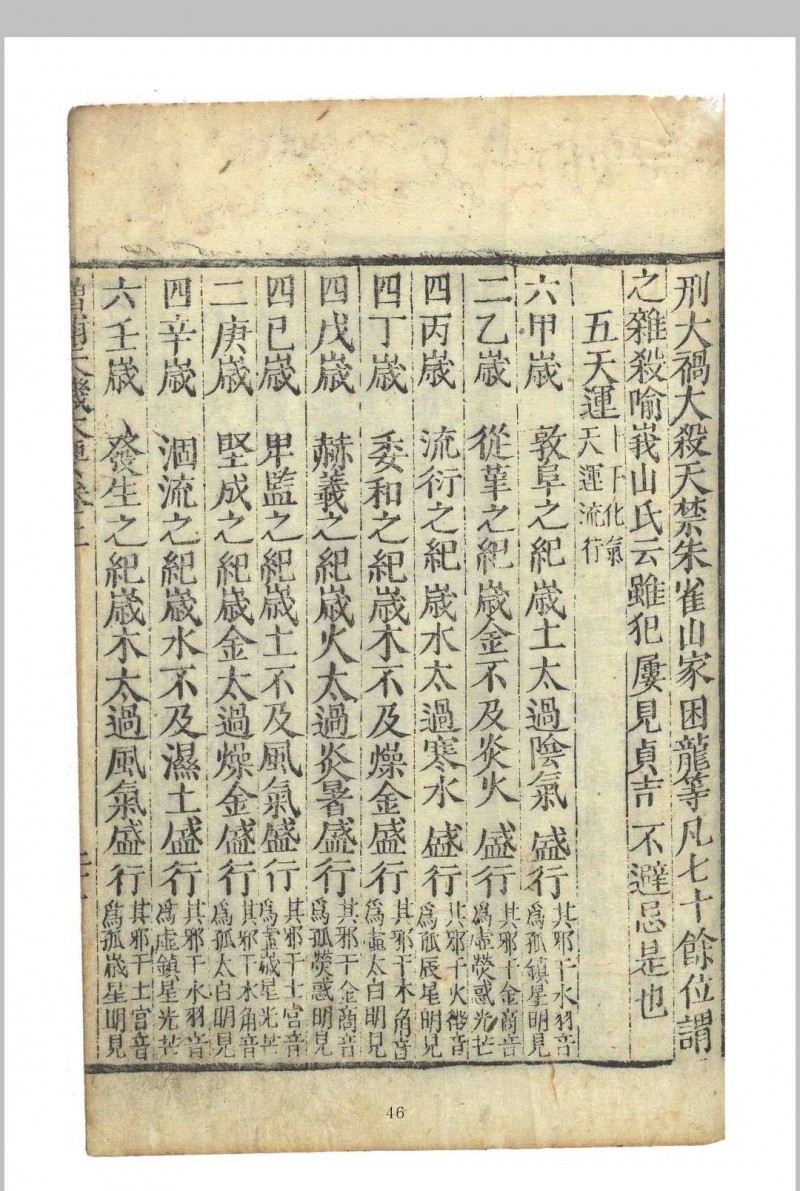 刑大禍大殺天禁朱雀山家困龍等凡七十餘位謂
之雜殺喻峩山氏云雖犯屢見貞吉不避忌是也
五天運十干化氣天運流行
六甲嵗　敦阜之紀嵗土太過陰氣盛行其邪干水羽音爲孤鎮星明見
二乙嵗　從革之紀嵗金不及炎火盛行其邪干金商音爲虛熒惑光芒
四丙嵗　流衍之紀嵗水太過寒水盛行其邪干火徵音爲孤辰星明見
四丁嵗　委和之紀嵗木不及燥金盛行其邪干木角音爲虛太白明見
四戊嵗　赫羲之紀嵗火太過炎暑盛行其邪干金商音爲孤熒惑明見
四巳嵗　卑監之紀嵗土不及風氣盛行其邪干土宮音爲虛嵗星光芒
二庚嵗　堅成之紀嵗金太過燥金盛行其邪干木角音爲孤太白明見
四辛嵗　涸流之紀嵗水不及濕土盛行其邪干水羽音爲虛鎮星光芒
六壬嵗　發生之紀嵗木太過風氣盛行其邪干土宮音爲孤嵗星明見
46